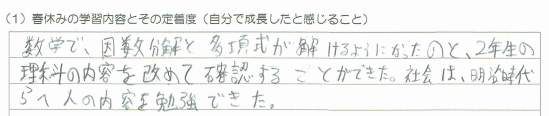 (1) 春休みの学習内容とその定着度（自分で成長したと感じること）
数学で、因数分解と多項式が解けるようになったのと、2年生の
理科の内容を改めて確認することができた。社会は、明治時代
らへんの内容を勉強できた。